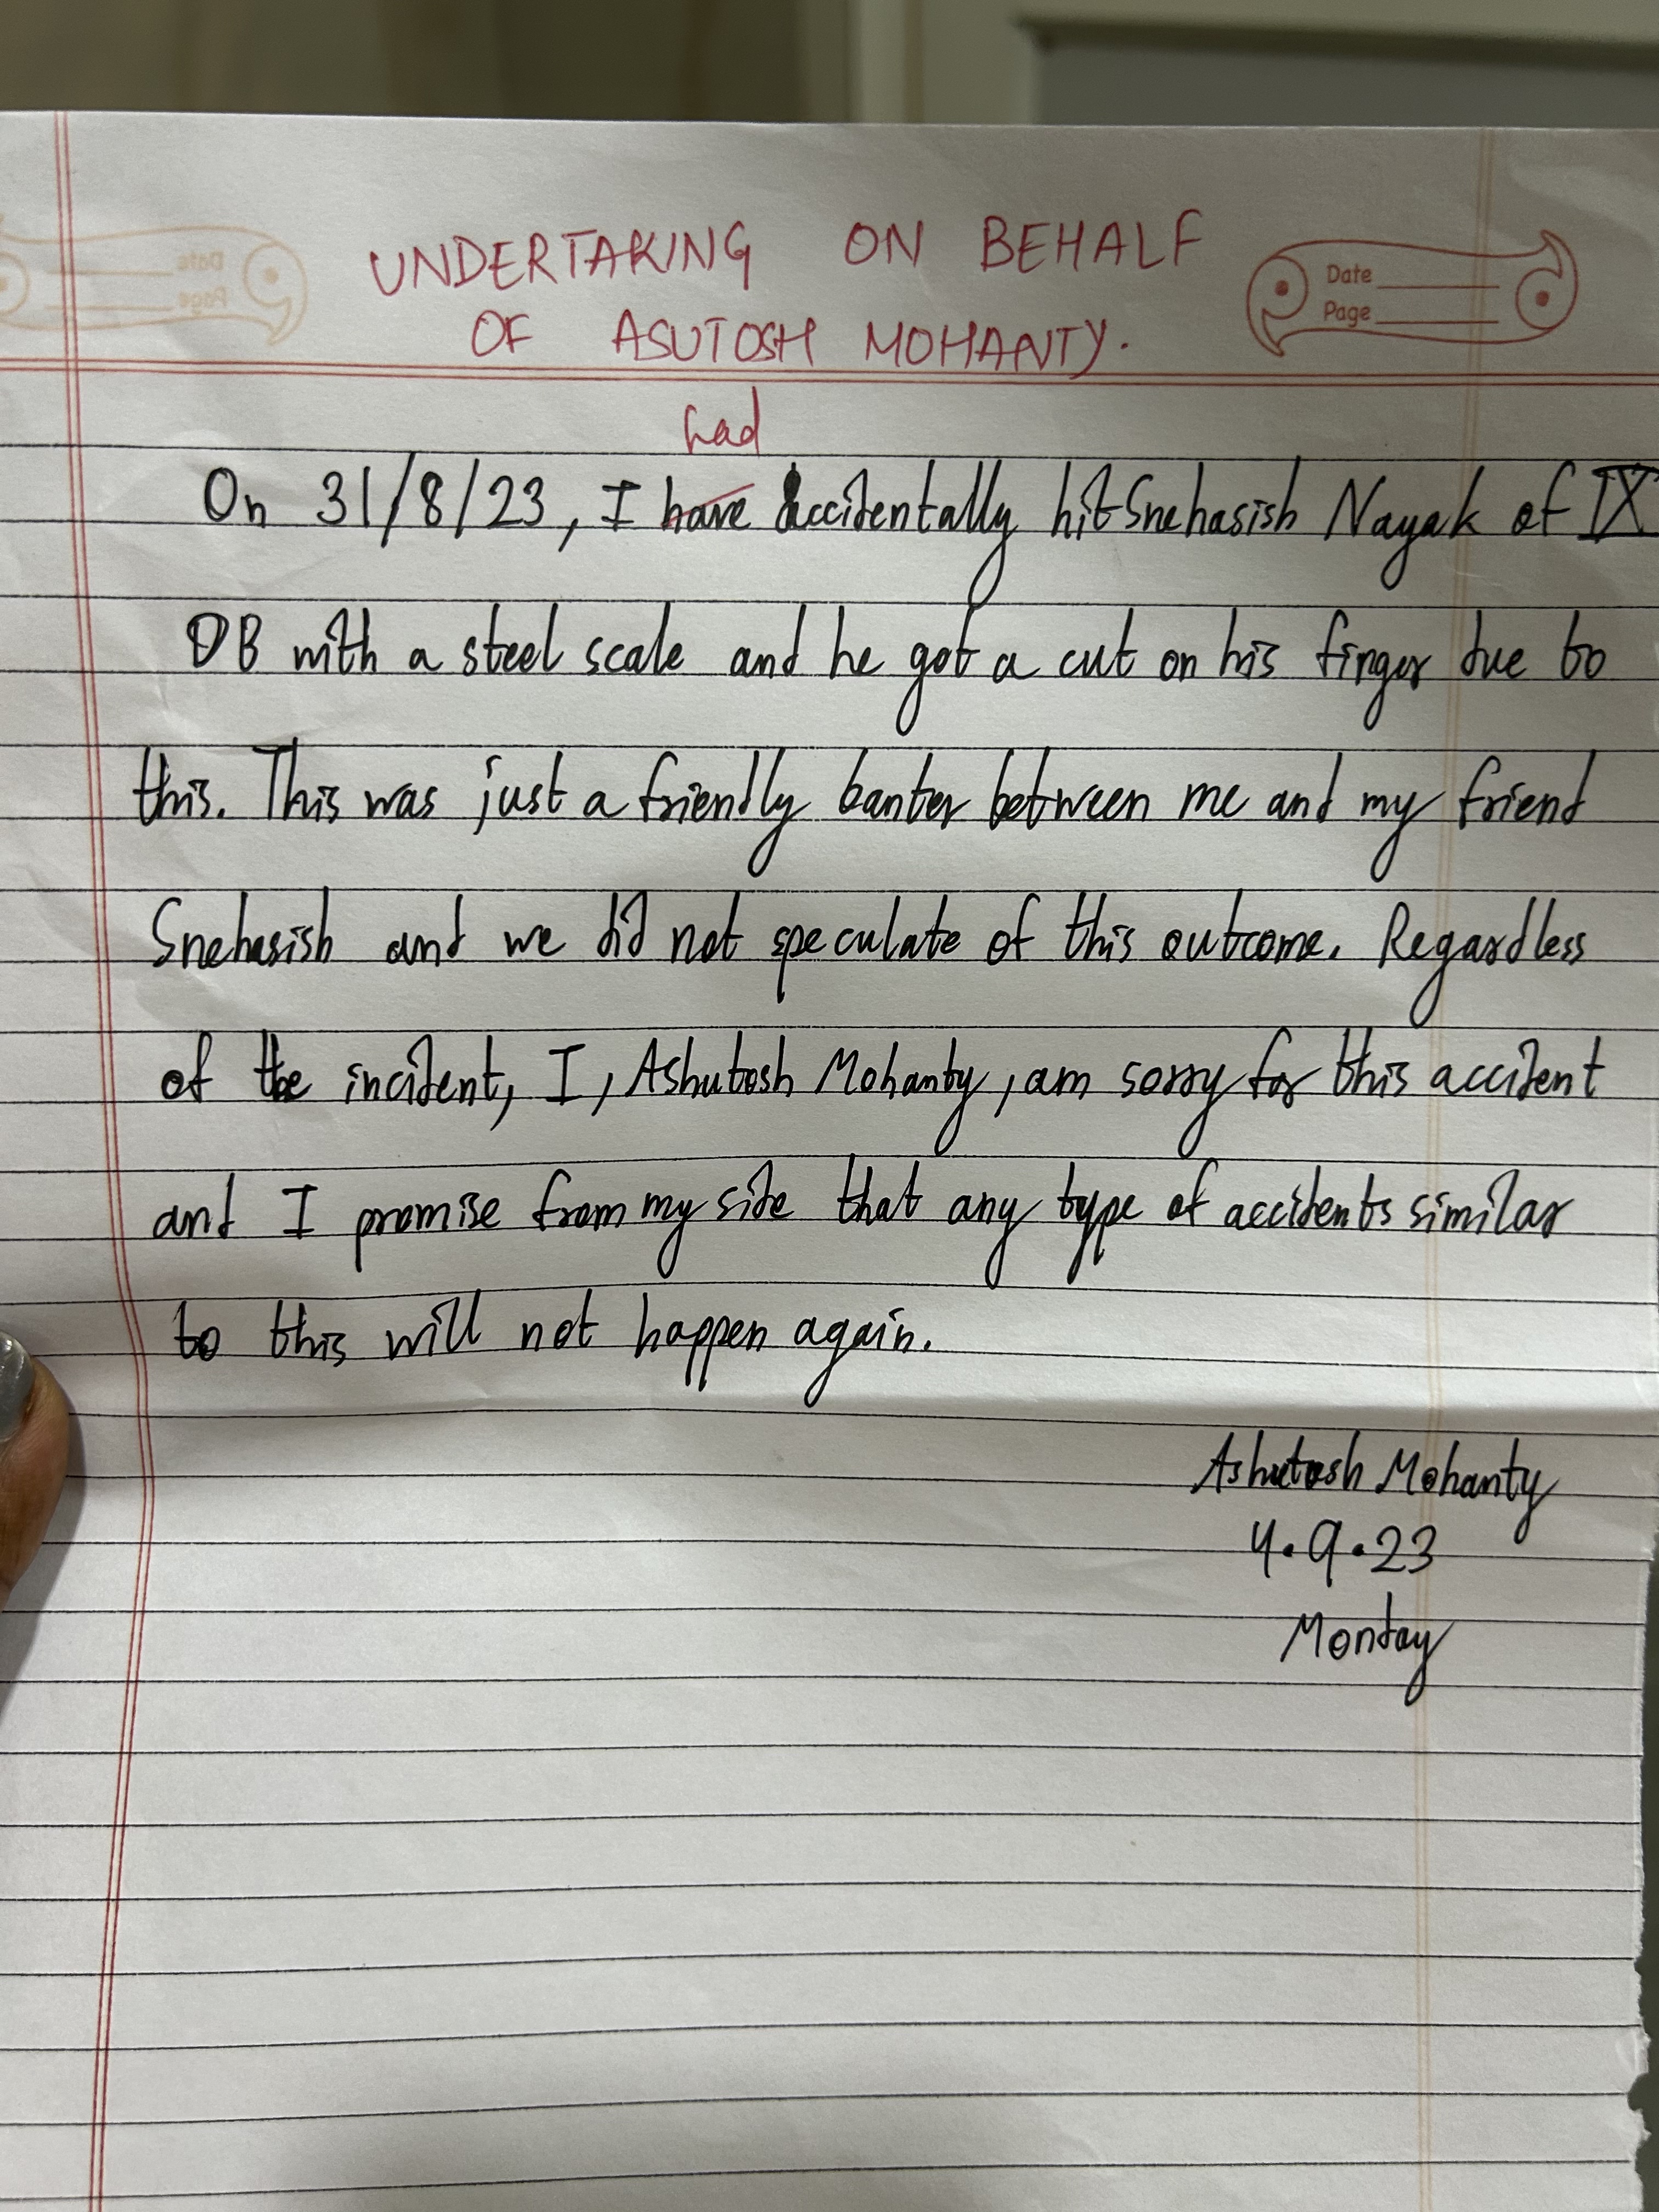 UNDERTAKING ON BEHALF
OF ASUTOSH MOHANTY.
Date
Page
had
On 31/8/23, I have accidentally hit Snehasish Nayak of IX
DB with a steel scale and he got a cut on his finger due to
this. This was just a friendly banter between me and my friend
Snehasish and we did not speculate of this outcome. Regardless
of the incident, I, Ashutosh Mohanty, am sorry for this accident
and I promise from my side that any type of accidents similar
to this will not happen again.
Ashutosh Mohanty
4.9.23
Monday